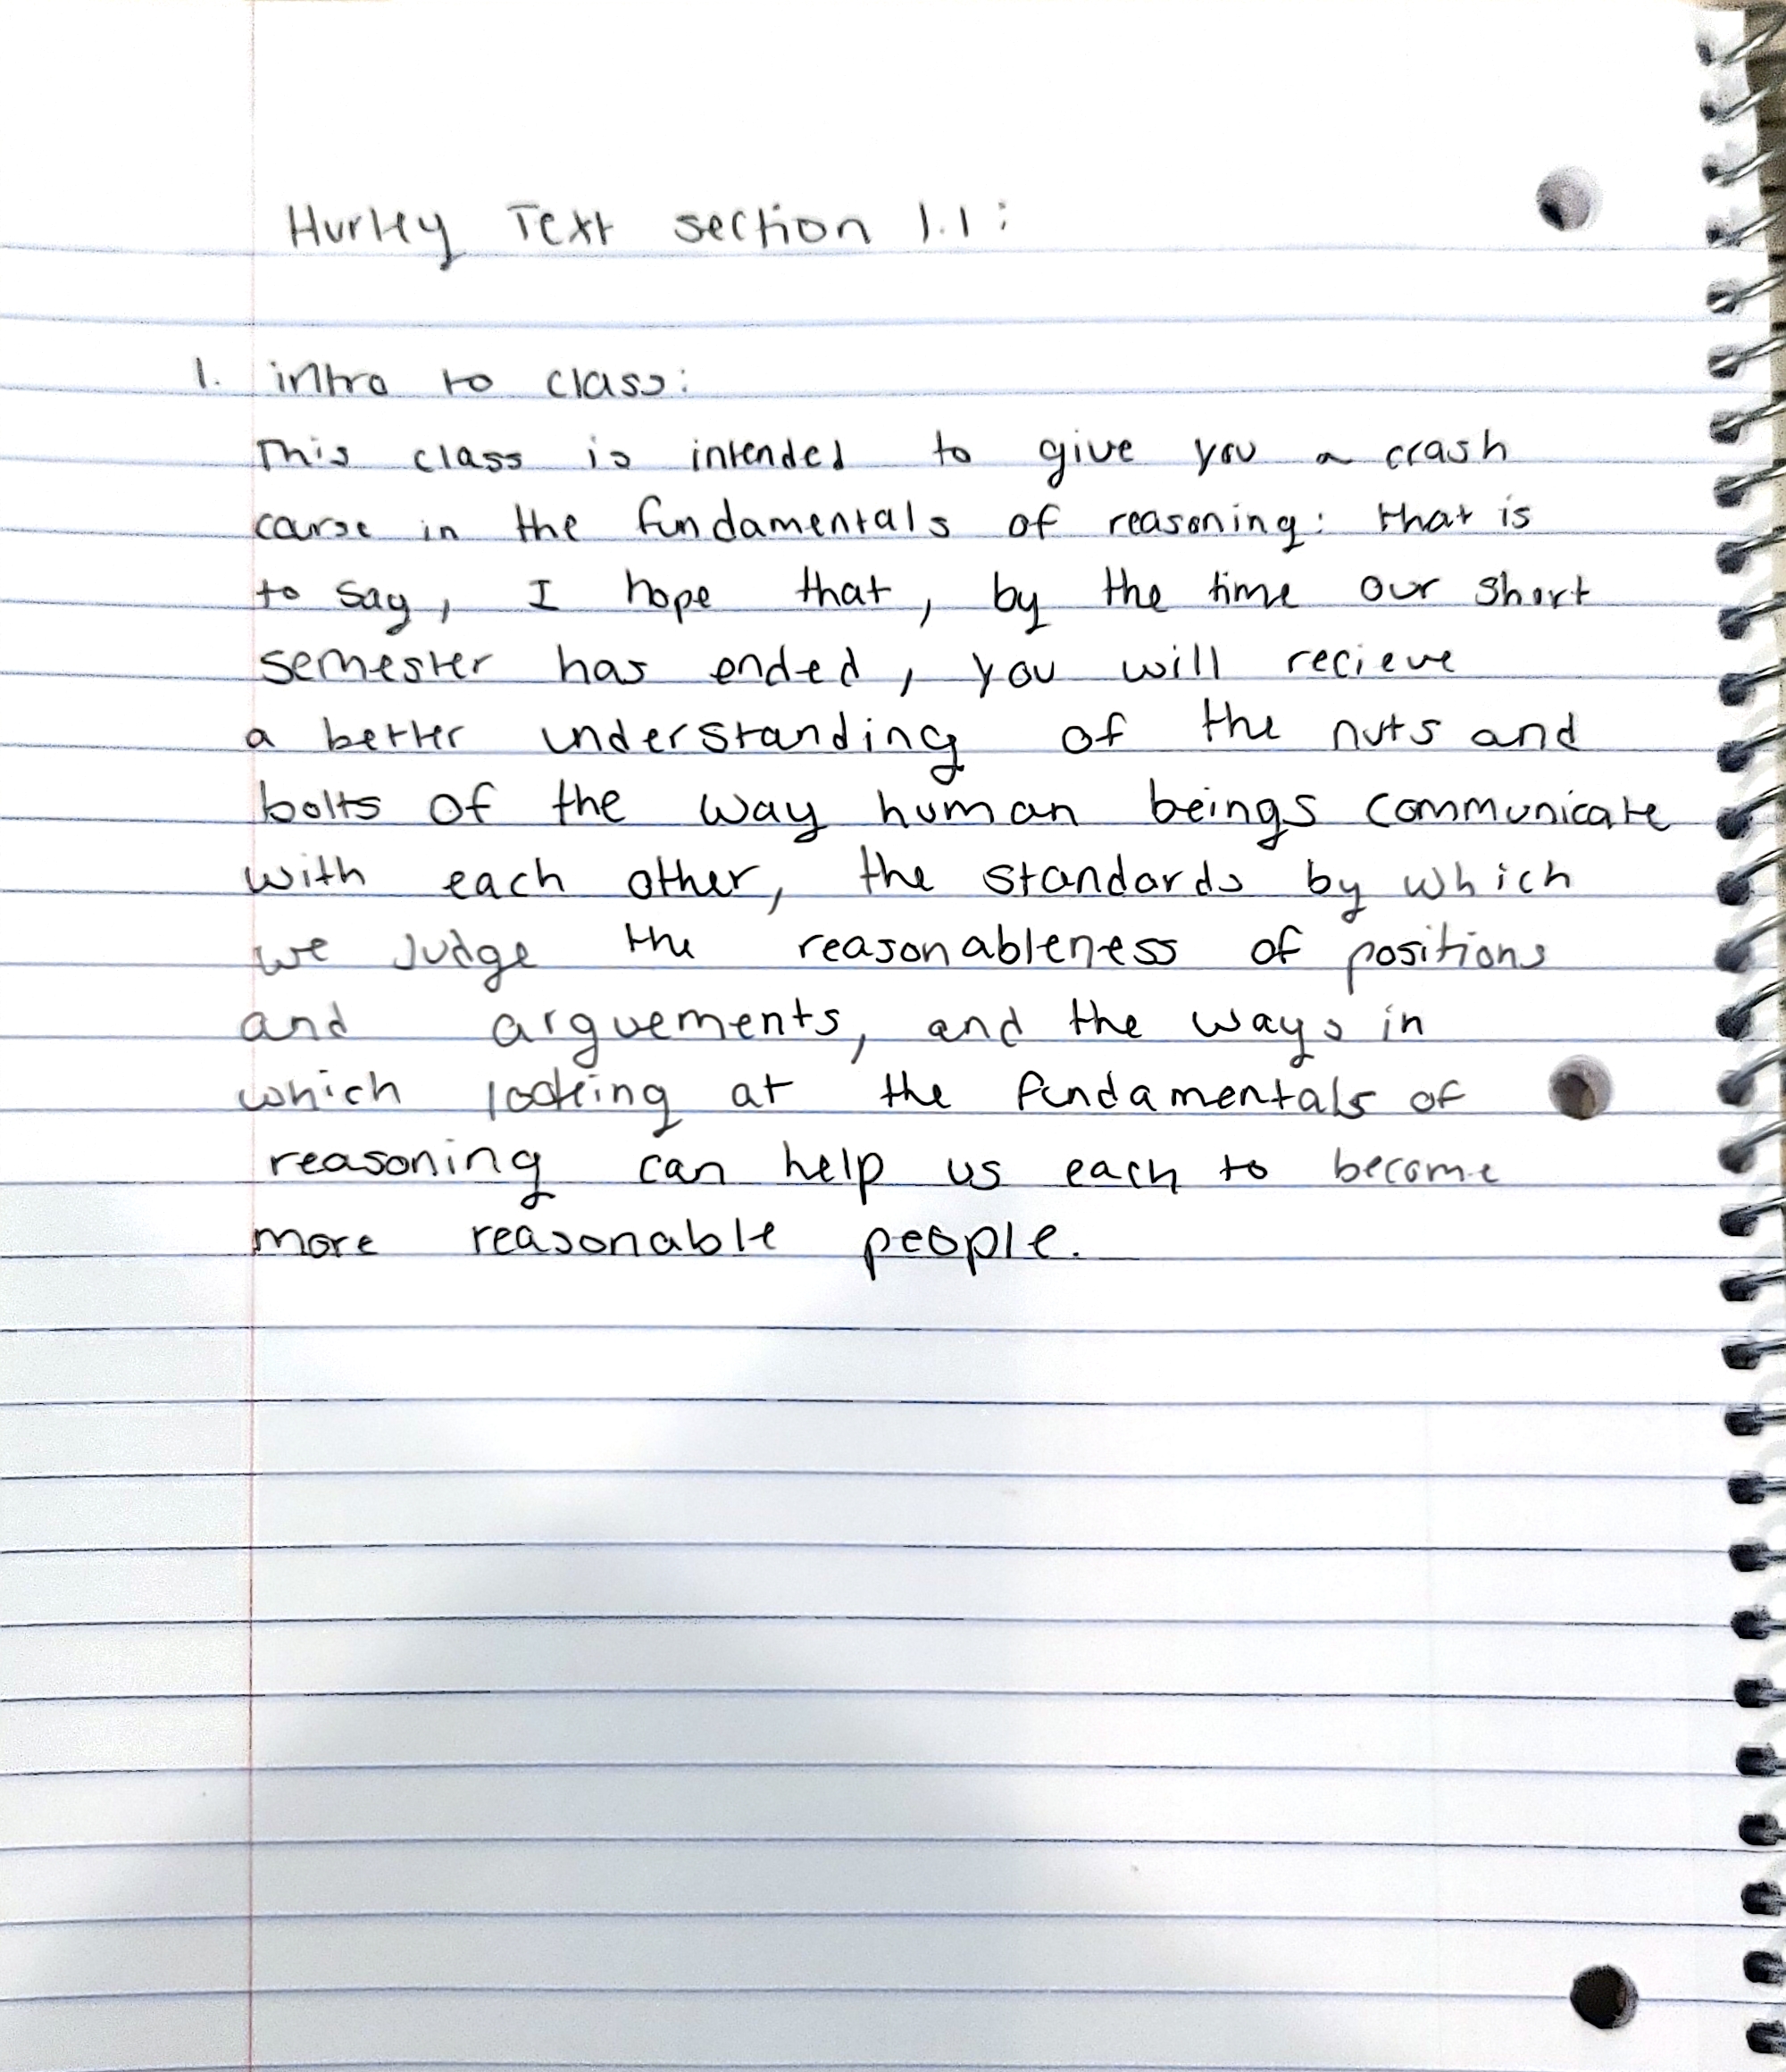 Hurley Text section 1.1:
1. intro to class:
This class is intended to give you a crash
carse in the fundamentals of reasoning: that is
to say, I hope that, by the time our short
semester has ended, you will recieve
a better understanding of the nuts and
bolts of the way human beings communicate
with each other, the standards by which
we judge the reasonableness of positions
and arguements, and the ways in
which looking at the fundamentals of
reasoning can help us each to become
more reasonable people.